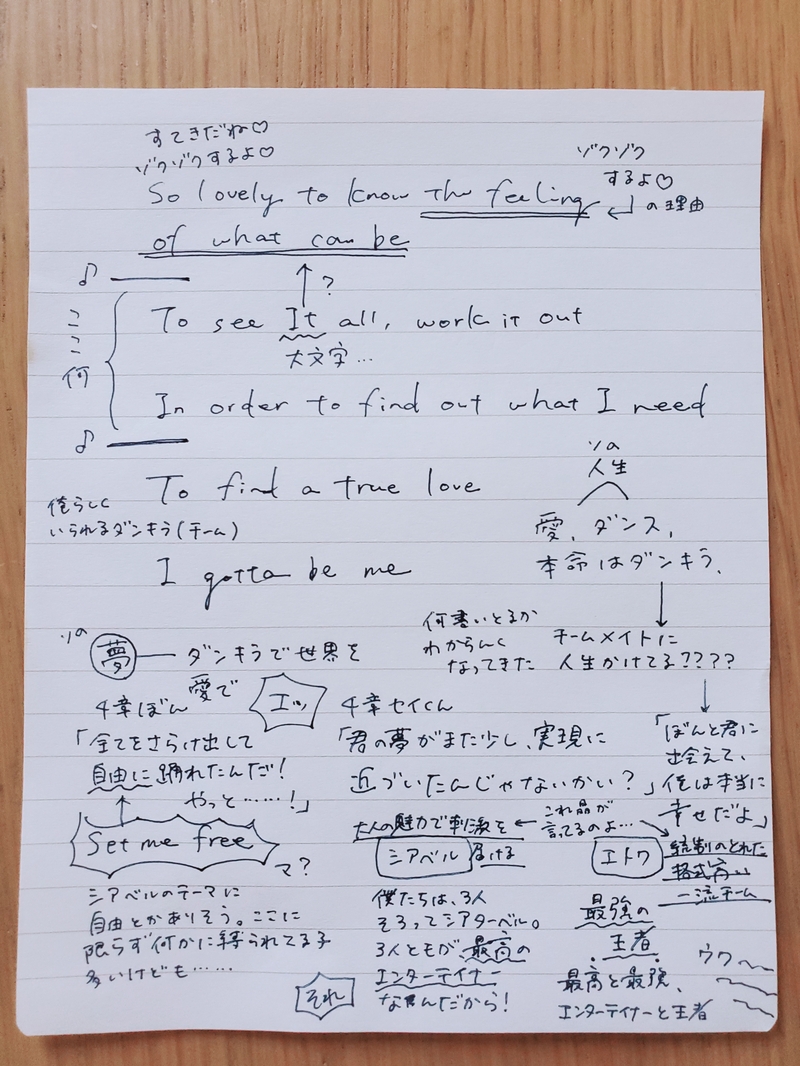 すてきだね♡
ゾクゾクするよ♡
So lovely to know the feeling
ゾクゾク
するよ♡
の理由
of what can be
♪
?
ここ何
To see It all, work it out
大文字…
In order to find out what I need
♪
To find a true love
俺らしく
いられるダンキラ(チーム)
I gotta be me
ソの
人生
愛、ダンス、
本命はダンキラ、
何書いとるか
わからんく
なってきた
チームメイトに
人生かけてる????
ソの
夢 ダンキラで世界を
愛で
エッ
4章ぼん
「全てをさらけ出して
自由に踊れたんだ!
やっと……!」
Set me free
マ?
シアベルのテーマに
自由とかありそう。ここに
限らず何かに縛られてる子
多いけども……
4章セイくん
「君の夢がまた少し、実現に
近づいたんじゃないかい?」
「ぼんと君に
出会えて、
俺は本当に
幸せだよ」
大人の魅力で刺激を
シアベル 届ける
これ晶が
言ってるのよ…
エトワ
統制のとれた
格式高い
一流チーム
僕たちは、3人
そろってシアターベル。
3人ともが、最高の
エンターテイナー
なんだから!
それ
最強の
王者
最高と最強、
エンターテイナーと王者
ウワ〜〜